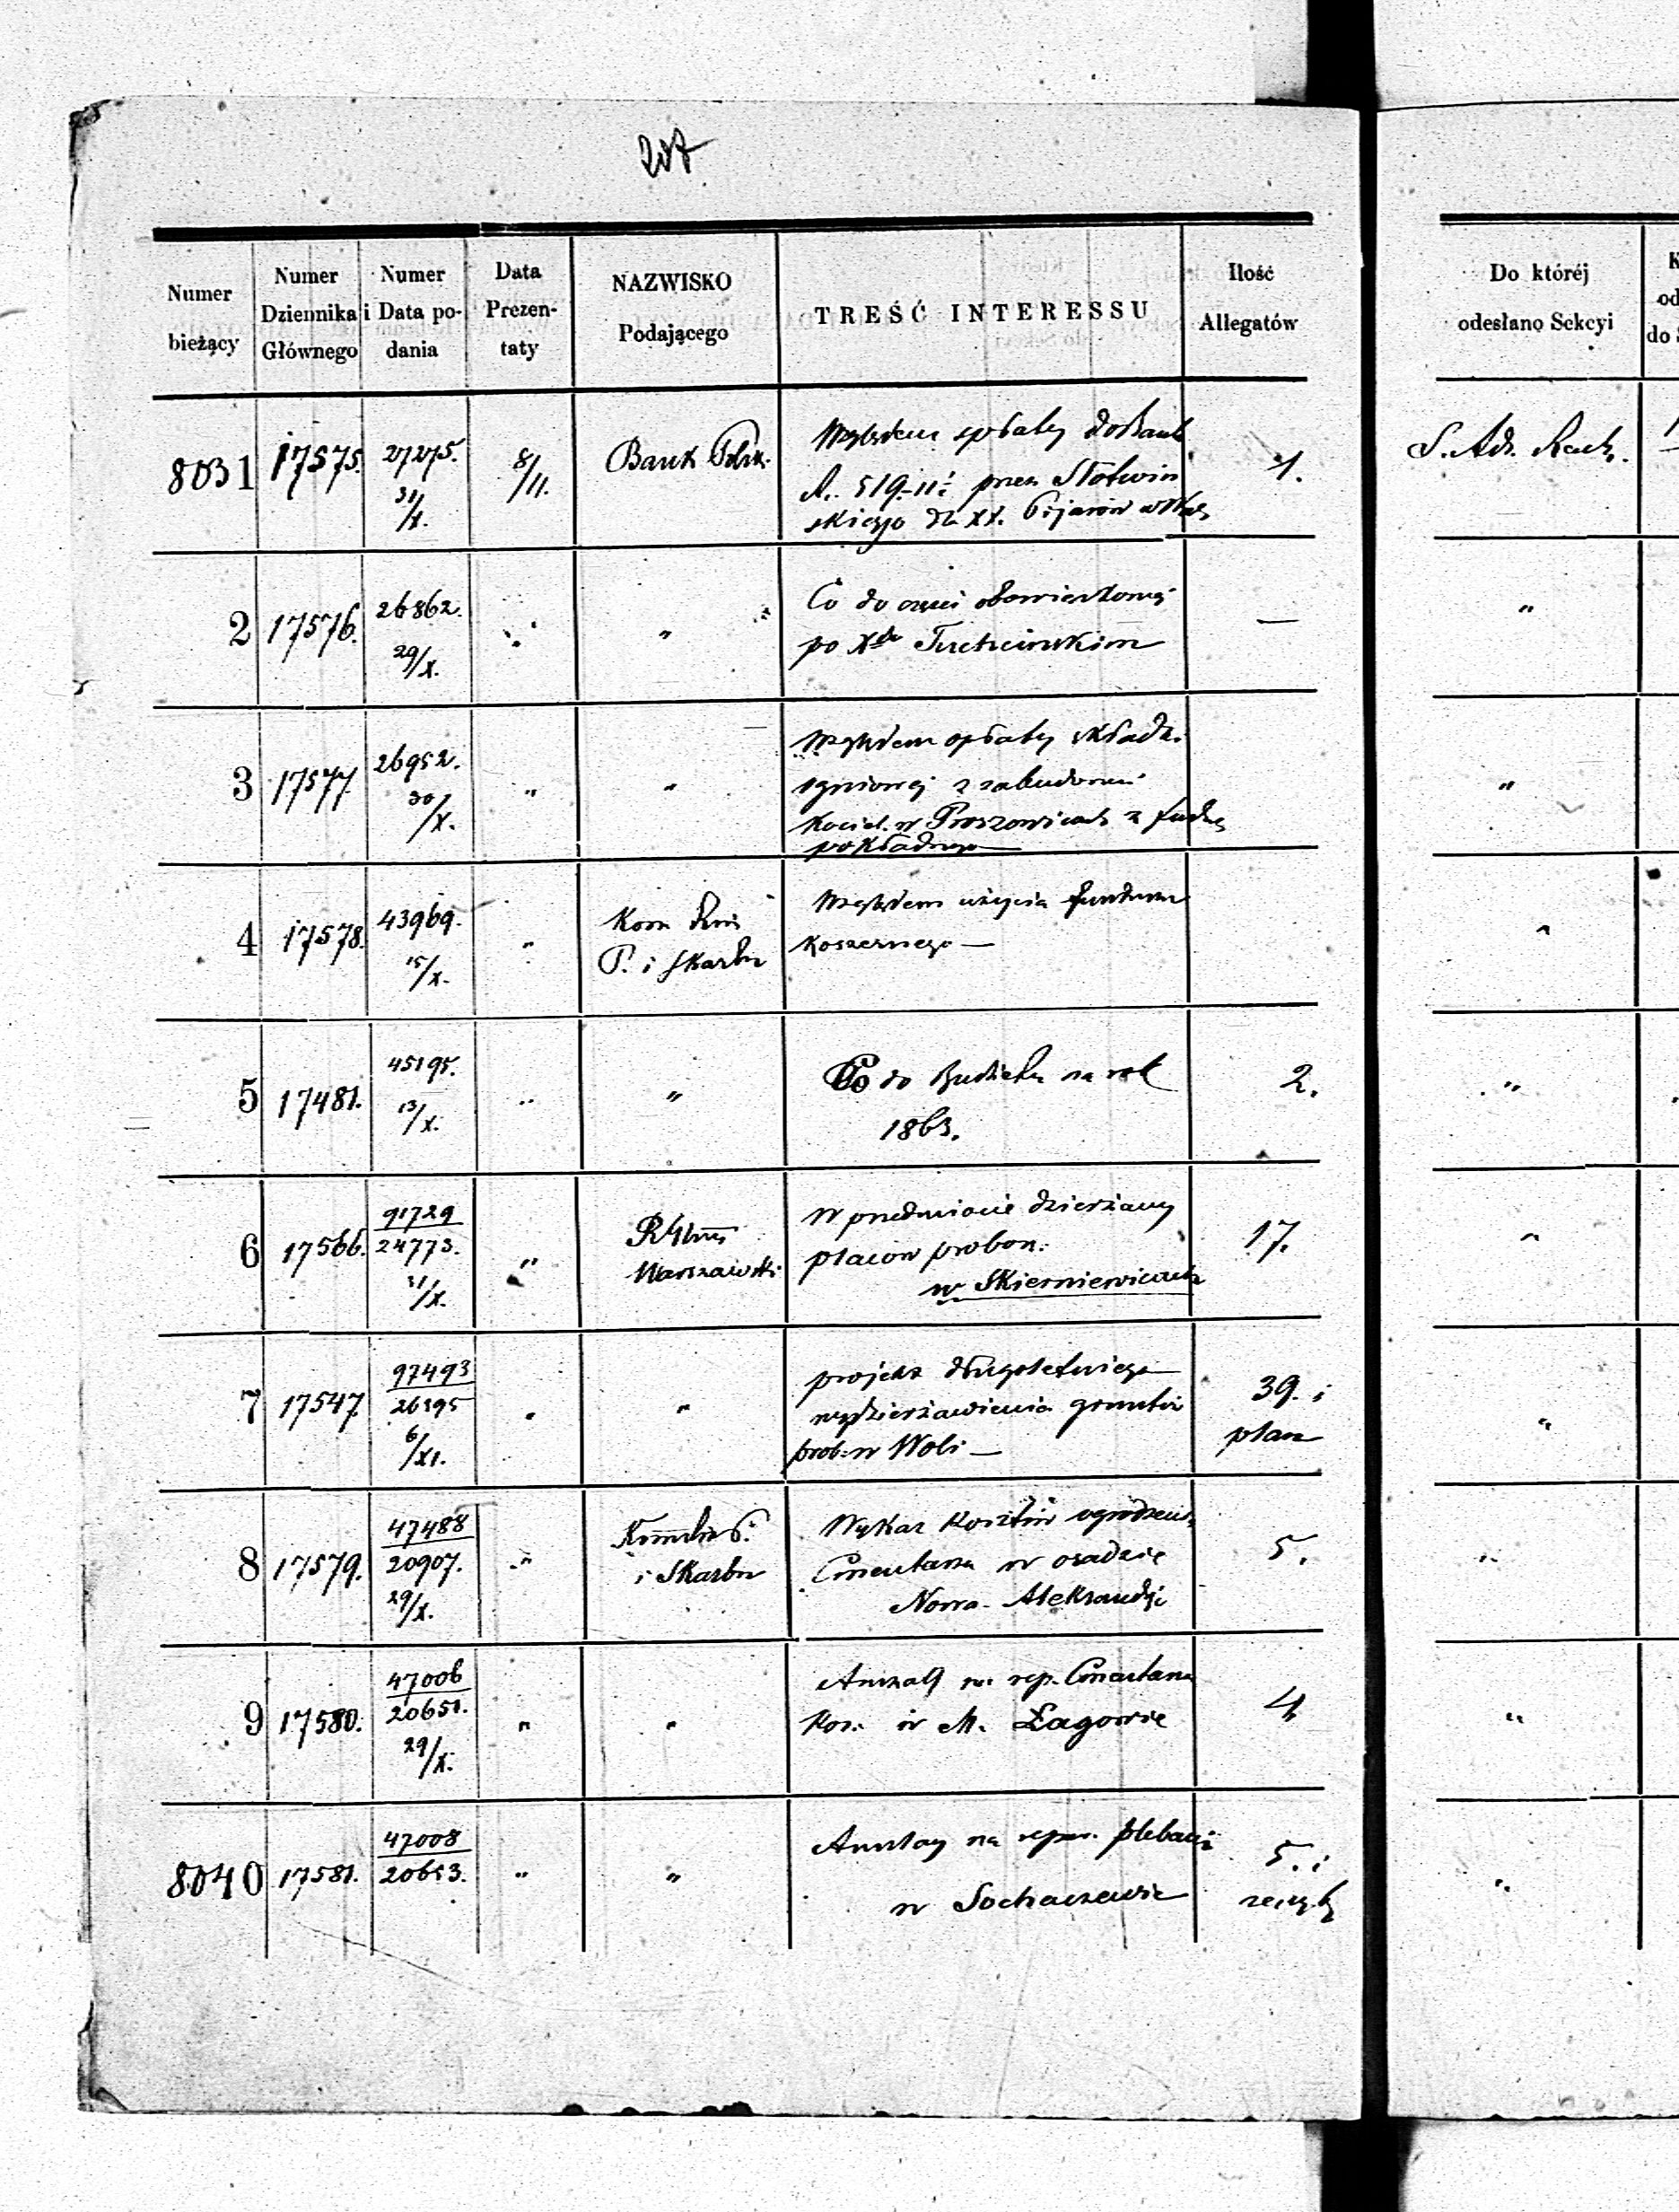 207
Numer bieżący
Numer Dziennika Głównego
Numer i Data podania
Data Prezentaty
NAZWISKO Podającego
TREŚĆ INTERESSU
Ilość Allegatów
Do któréj odesłano Sekcyi
8031 17575. 27275. 31/X. 8/11. Bank Polsk. Względem spłaty do Banku 1. S. Ad. Rach.
R. 519.-11 przez Słotwiń
skiego dla XX. Pijarów w
2 17576. 26862. 29/X. " " Co do części — "
po Xdzu
3 17577. 26952. 30/X. " " Względem opłaty składki "
ogniowej z zabudowań
Kościel. w Proszowicach z fund.
pokładnego
4 17578. 43969. 15/X. " Kom Rzą Względem użycia funduszu "
P. i Skarbu Koszernego
5 17481. 45195. 13/X. " " Co do Budżetu na rok 2. "
1863.
6 17566. 91729 24773. 31/X. " R Gbny W przedmiocie dzierżawy 17. "
Warszawski placów probon:
w Skierniewicach
7 17547. 97493 26395 6/XI. " " projekt długoletniego 39. i "
wydzierżawienia gruntów plan
prob: w Woli
8 17579. 47488 20907. 29/X. " P. Wykaz kosztów ogrodzenia 5. "
i Skarbu Cmentarza w osadzie
Nowa-Aleksandrji
9 17580. 47006 20651. 29/X. " " Anszlag na rep. Cmentarza 4 "
Kos: w M. Łagowie
8040 17581. 47008 20653. " " Anszlag na repar. plebanii 5. i "
w Sochaczewie